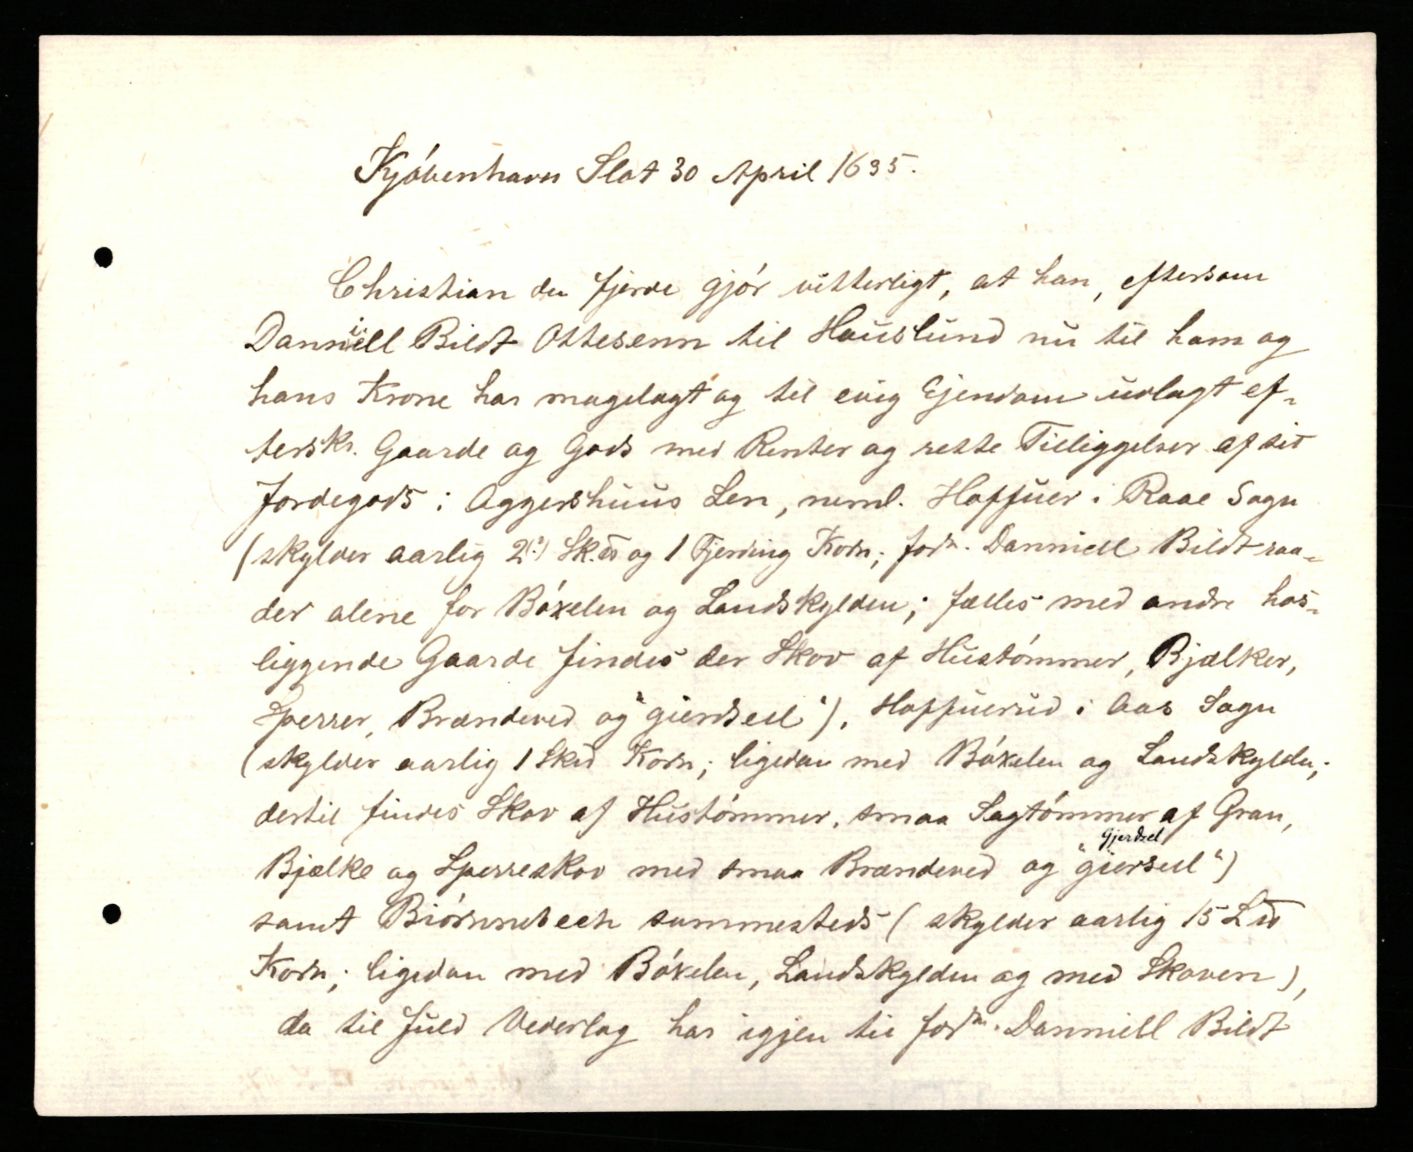 Kjóbenhavns Slot 30 April 1635.
Christian den fjerde gjór vitterligt, at han, eftersom
Danniell Bildt Ottesenn til Hauslund nu til ham og
hans Krone har magelagt og til evig Ejendom udlagt ef-
tersk. Gaarde og Gods med Renter og rette Tilliggelser af sit
Jordegods i Aggershuus Len, neml. Haffuer i Raae Sogn
(skylder aarlig 2(?) Sk. og 1 Fjerding Korn; fordn. Danniell Bildt raa-
der alene for Bóxelen og Landskylden; fælles med andre hos-
liggende Gaarde findes der Skov af Hustómmer, Bjælker,
Sperrer, Brændeved og "gierdsell"), Haffuerud i Aas Sogn
(skylder aarlig 1 Skd Korn; ligedan med Bóxelen og Landskylden;
dertil findes Skov af Hustómmer, smaa Sagtómmer af Gran,
Gjerdsel
Bjælke og Sperreskov med smaa Brændeved og "giersell")
samt Biórnnebech sammesteds (skylder aarlig 15 L
Korn; ligedan med Bóxelen, Landskylden og med Skoven),
da til fuld Vederlag har igjen til fordn. Danniell Bildt